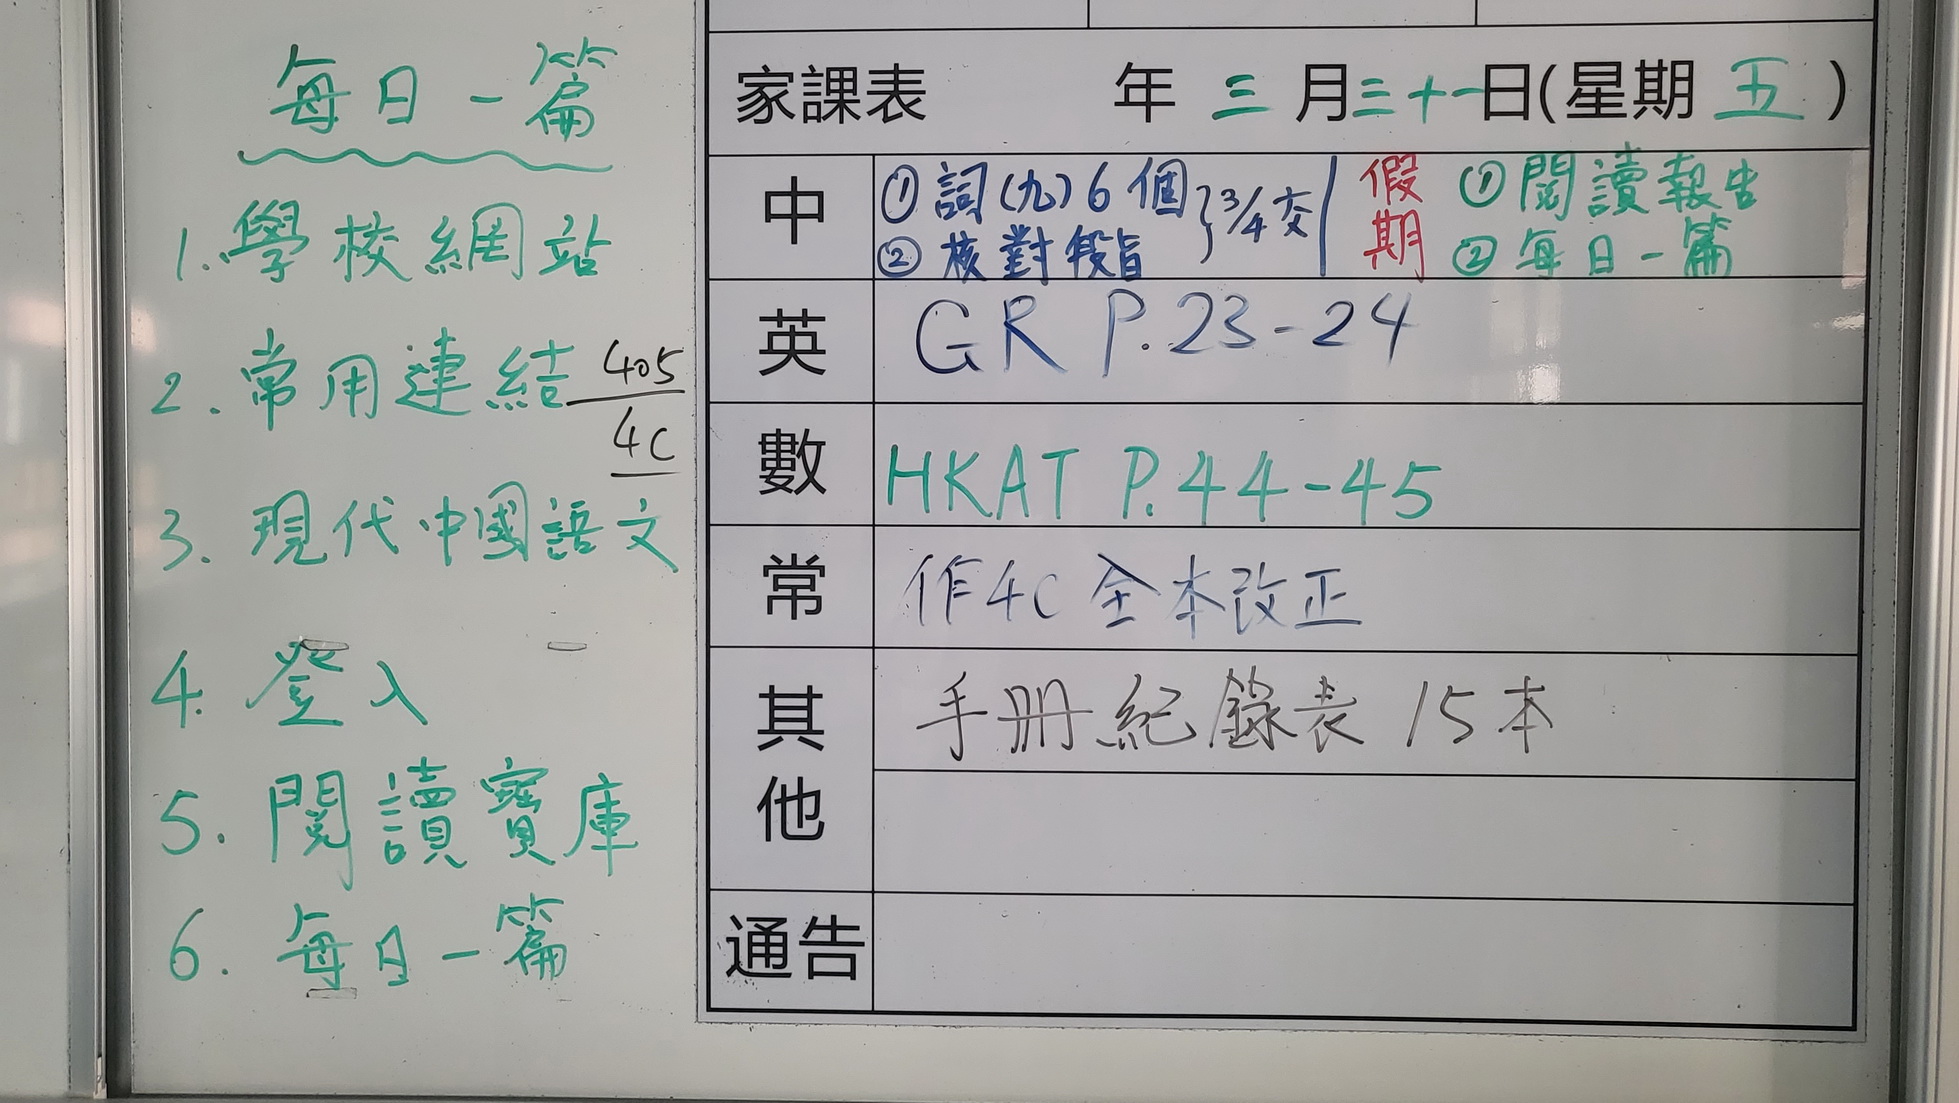 每日一篇
1. 學校網站
2. 常用連結
405
4C
3. 現代中國語文
4. 登入
5. 閱讀寶庫
6. 每日一篇
家課表 年 三 月 三十一日(星期 五 )
中 ① 詞(九) 6 個 } 3/4 交 假期 ① 閱讀報告
② 核對段旨 ② 每日一篇
英 GR P.23-24
數 HKAT P.44-45
常 作4C 全本改正
其他 手冊紀錄表 15本
通告